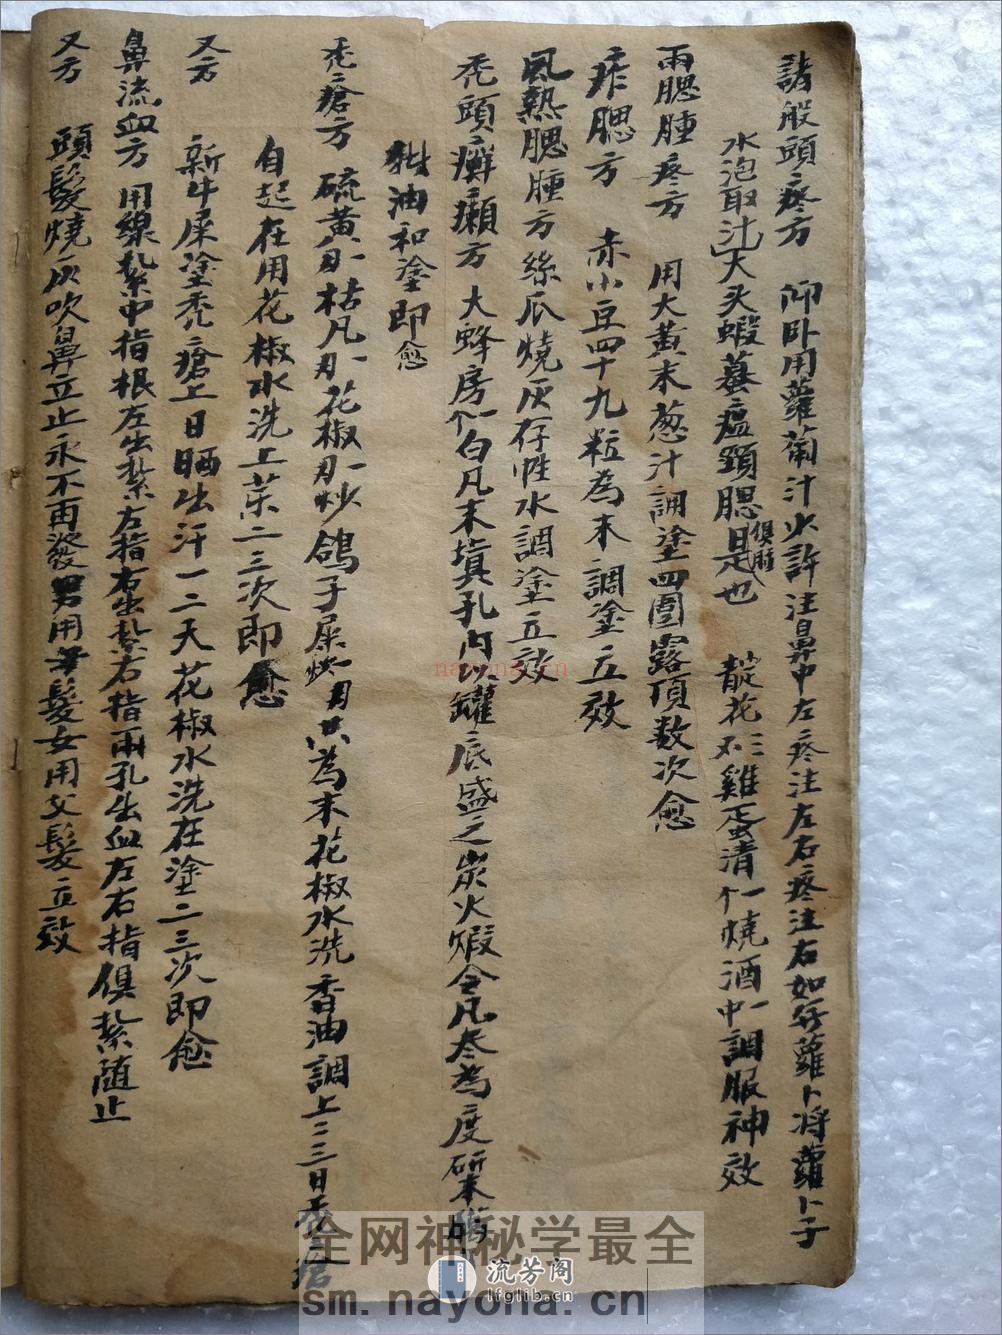 諸般頭疼方 仰卧用蘿蔔汁少許注鼻中左疼注左右疼注右如無蘿卜将蘿卜子
水泡取汁 大头蝦蟇瘟頭腮俱腫是也 靛花三不雞蛋清一个燒酒一中調服神效
兩腮腫疼方 用大黄末葱汁調塗四圍露頂数次愈
痄腮方 赤小豆四十九粒為末調塗立效
風熱腮腫方 絲瓜燒灰存性水調塗立效
禿頭癬癩方 大蜂房一个白凡末填孔内以罐底盛之炭火煅令凡尽為度研末
油和塗即愈
禿瘡方 硫黄 枯凡 花椒 炒鴿子屎 共為末花椒水洗香油調上二三日禿瘡
自起在用花椒水洗上药二三次即愈
又方 新牛屎塗禿瘡上日晒出汗一二天花椒水洗在塗二三次即愈
鼻流血方 用線紮中指根左出紮左指右出紮右指兩孔出血左右指俱紮随止
又方 頭髮燒灰吹鼻立止永不再發男用 髮女用父髮立效
nayona.cn
全网神秘学最全
sm.nayona.cn
流芳阁
lfglib.com